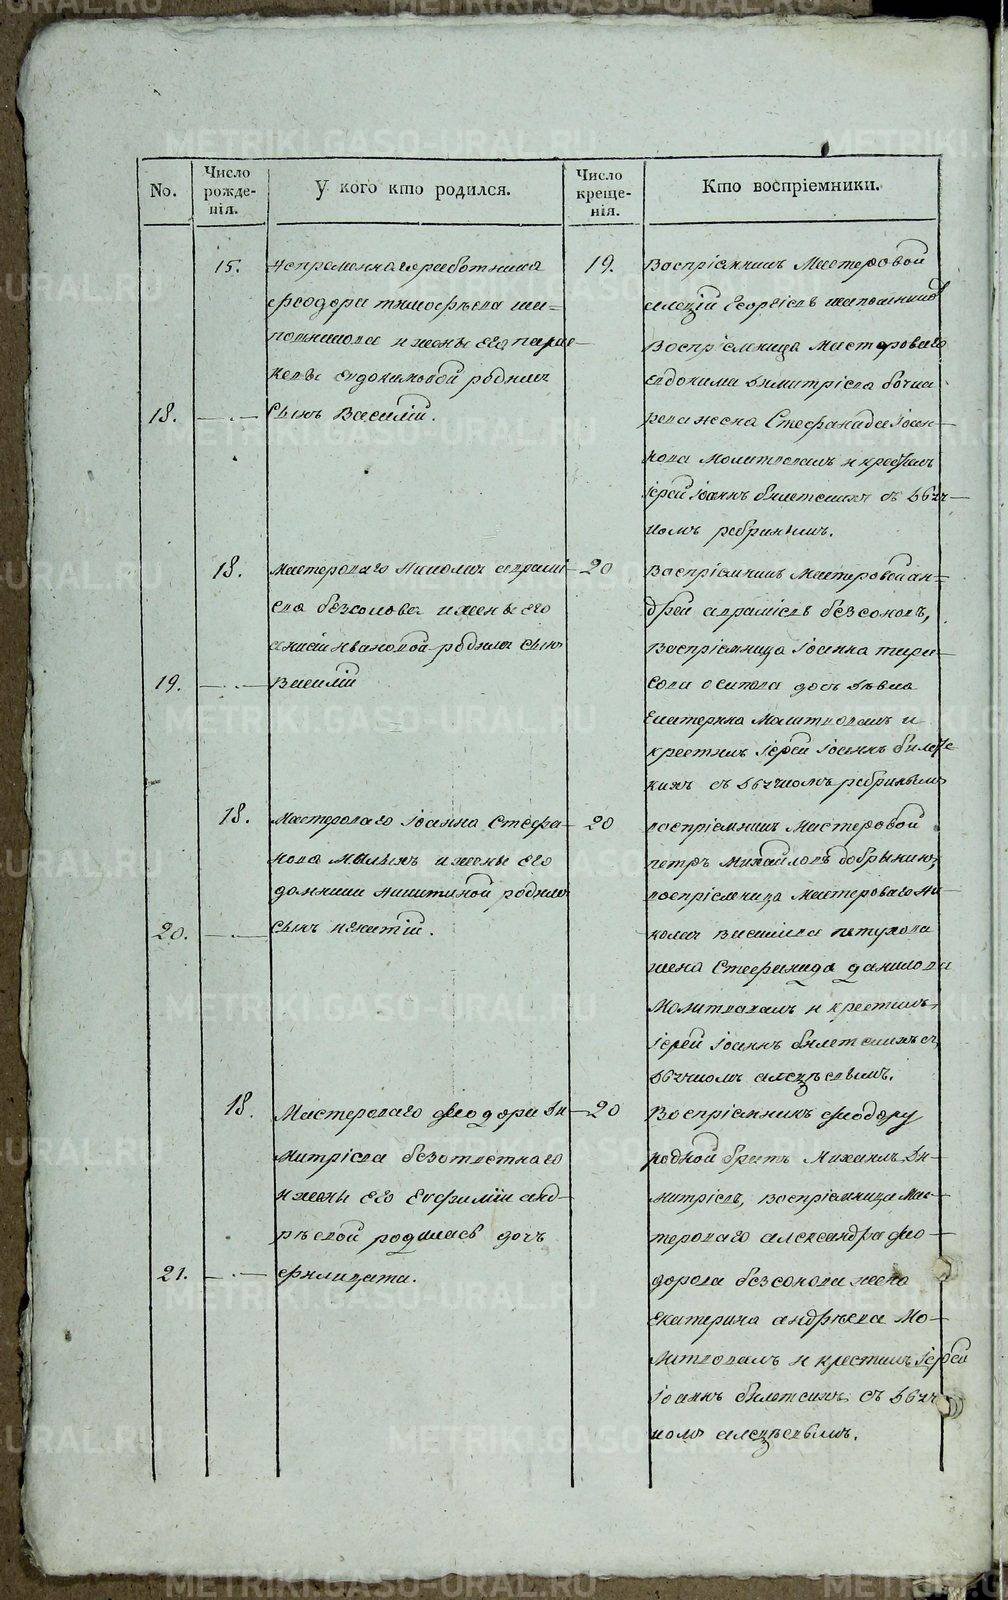 No.
Число рожде-нія.
У кого кто родился.
Число креще-нія.
Кто воспріемники.
15.
Непременнаго работника
Феодора тимофѣева ши-
почникова и жены его параске-
вы евдокимовой родился
18.
сынъ Василій.
19.
Воспріемникъ Мастеровой
алексій Георгіевъ
Воспріемница мастероваго
евдокима димитріева бочка
рева жена Стефанида Іоан-
нова Молитвовалъ и крестилъ
іерей іоаннъ билетскихъ съ дья-
комъ ребринымъ.
18.
Мастероваго николая аврамі-
ева безсонова и жены его
анисіи ивановой родился сынъ
19.
Василій
20
Воспріемникъ Мастеровой ан-
дрей авраміевъ безсоновъ,
Воспріемница іоанна тара-
сова осипова дочь дѣвка
Екатерина Молитвовалъ и
крестилъ іерей іоаннъ билетс-
кихъ съ дьякомъ ребринымъ
18.
Мастероваго іоанна Стефа-
нова малыхъ и жены его
домники никитиной родился
20.
сынъ игнатій.
20
воспріемникъ Мастеровой
петръ Михайловъ добрынинъ,
воспріемница Мастероваго ни-
колая васильева петухова
жена Стефанида данилова
Молитвовалъ и крестилъ
іерей іоаннъ билетскихъ съ
дьякомъ алексѣевымъ.
18.
Мастероваго феодора ди-
митріева безответнаго
и жены его Евфиміи анд-
рѣевой родилась дочь
21.
филицата.
20
Воспріемникъ феодору
родной братъ Михаилъ ди-
митріевъ, воспріемница Мас-
тероваго александра фео-
дорова безсонова жена
екатерина андрѣева Мо-
литвовалъ и крестилъ іерей
іоаннъ билетскихъ съ дья-
комъ алексѣевымъ.
METRIKI.GASO-URAL.RU